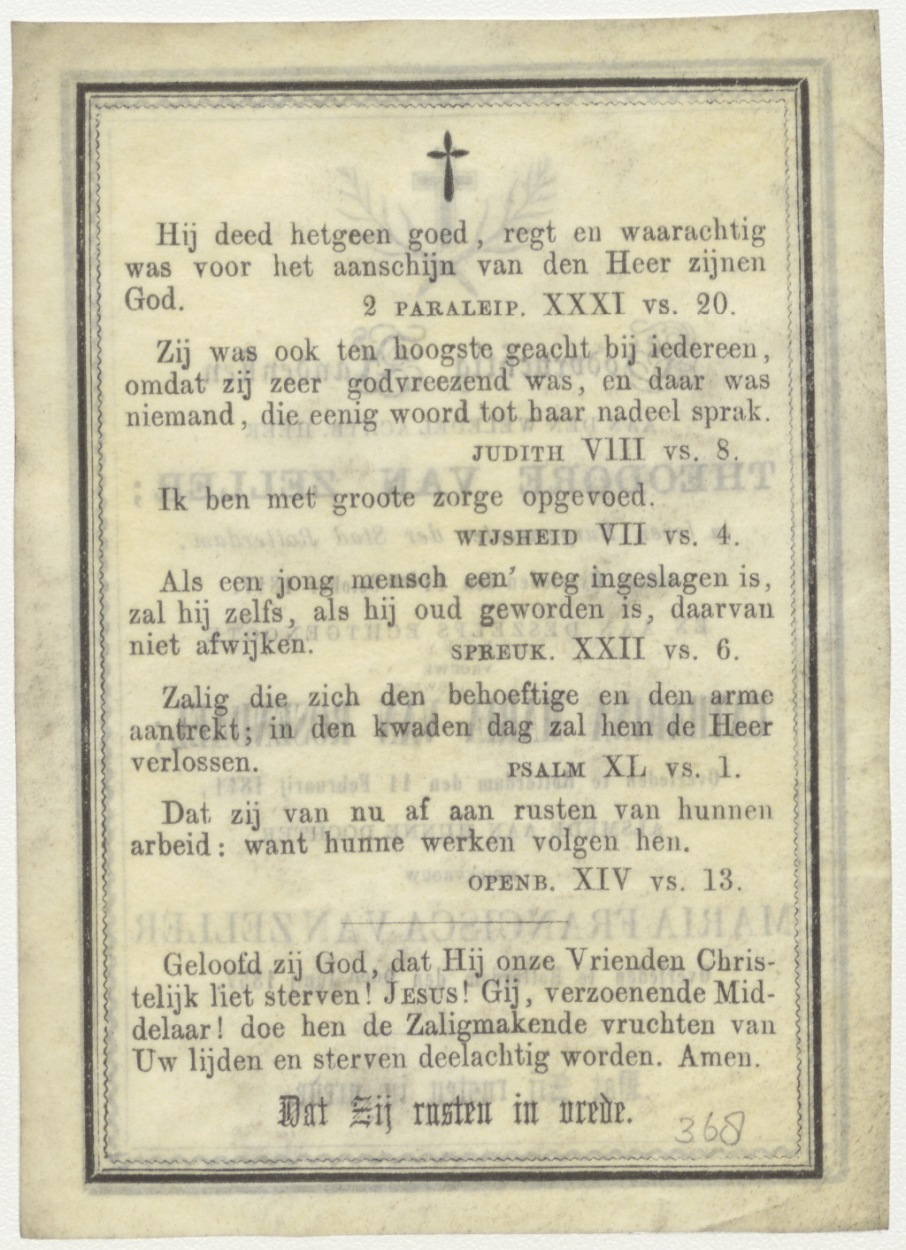 Hij deed hetgeen goed, regt en waarachtig
was voor het aanschijn van den Heer zijnen
God. 2 PARALEIP. XXXI vs. 20.
Zij was ook ten hoogste geacht bij iedereen,
omdat zij zeer godvreezend was, en daar was
niemand, die eenig woord tot haar nadeel sprak.
JUDITH VIII vs. 8.
Ik ben met groote zorge opgevoed.
WIJSHEID VII vs. 4.
Als een jong mensch een' weg ingeslagen is,
zal hij zelfs, als hij oud geworden is, daarvan
niet afwijken. SPREUK. XXII vs. 6.
Zalig die zich den behoeftige en den arme
aantrekt; in den kwaden dag zal hem de Heer
verlossen. PSALM XL vs. 1.
Dat zij van nu af aan rusten van hunnen
arbeid: want hunne werken volgen hen.
OPENB. XIV vs. 13.
Geloofd zij God, dat Hij onze Vrienden Chris-
telijk liet sterven! JESUS! Gij, verzoenende Mid-
delaar! doe hen de Zaligmakende vruchten van
Uw lijden en sterven deelachtig worden. Amen.
Dat Zij rusten in vrede.
368